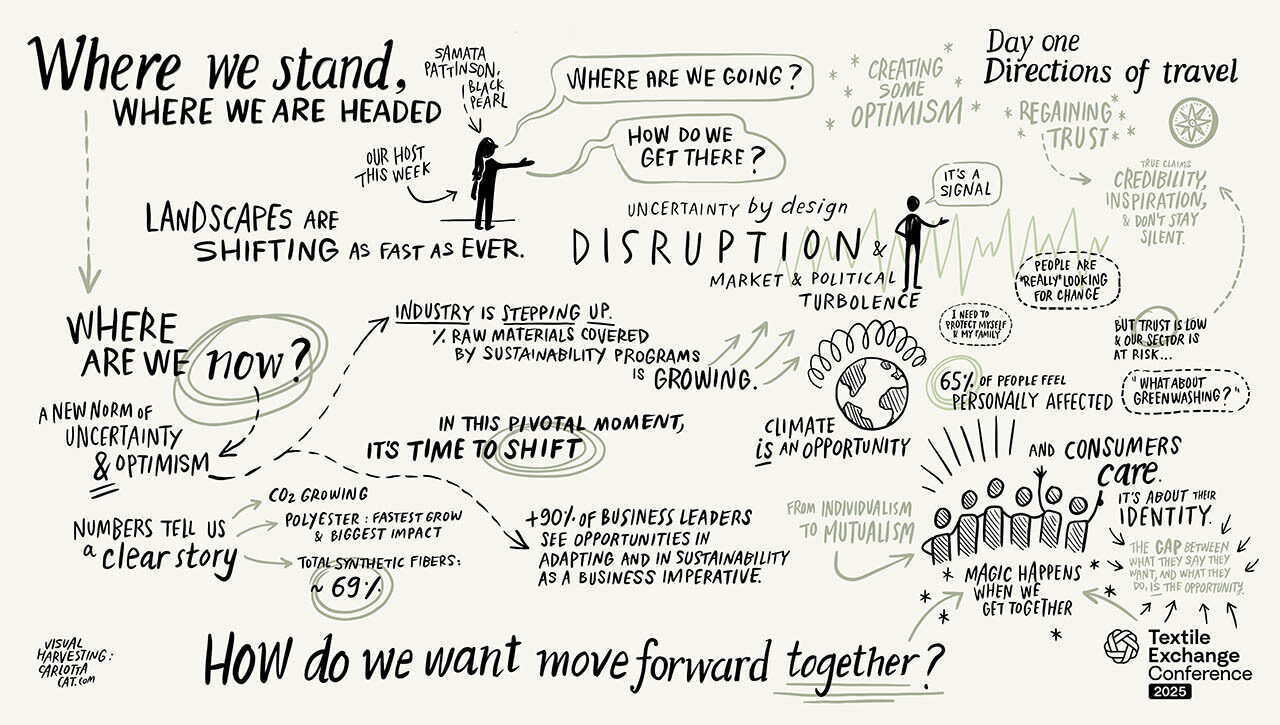 Where we stand,
WHERE WE ARE HEADED
SAMATA
PATTINSON,
BLACK
PEARL
OUR HOST
THIS WEEK
WHERE ARE WE GOING?
HOW DO WE
GET THERE?
CREATING
SOME
OPTIMISM
Day one
Directions of travel
REGAINING
TRUST
TRUE CLAIMS
CREDIBILITY,
INSPIRATION,
& DON'T STAY
SILENT.
LANDSCAPES ARE
SHIFTING AS FAST AS EVER.
UNCERTAINTY by design
DISRUPTION &
MARKET & POLITICAL
TURBOLENCE
IT'S A
SIGNAL
PEOPLE ARE
*REALLY* LOOKING
FOR CHANGE
I NEED TO
PROTECT MYSELF
& MY FAMILY
BUT TRUST IS LOW
& OUR SECTOR IS
AT RISK...
"WHAT ABOUT
GREENWASHING?"
65% OF PEOPLE FEEL
PERSONALLY AFFECTED
WHERE
ARE WE now?
INDUSTRY IS STEPPING UP.
% RAW MATERIALS COVERED
BY SUSTAINABILITY PROGRAMS
IS GROWING.
CLIMATE
IS AN OPPORTUNITY
A NEW NORM OF
UNCERTAINTY
& OPTIMISM
IN THIS PIVOTAL MOMENT,
IT'S TIME TO SHIFT
AND CONSUMERS
care.
IT'S ABOUT THEIR
IDENTITY.
THE GAP BETWEEN
WHAT THEY SAY THEY
WANT, AND WHAT THEY
DO, IS THE OPPORTUNITY.
NUMBERS TELL US
a clear story
CO2 GROWING
POLYESTER: FASTEST GROW
& BIGGEST IMPACT
TOTAL SYNTHETIC FIBERS:
~ 69%
+90% OF BUSINESS LEADERS
SEE OPPORTUNITIES IN
ADAPTING AND IN SUSTAINABILITY
AS A BUSINESS IMPERATIVE.
FROM INDIVIDUALISM
TO MUTUALISM
MAGIC HAPPENS
WHEN WE
GET TOGETHER
VISUAL
HARVESTING:
CARLOTTA
CAT.com
HOW do we want move forward together?
Textile
Exchange
Conference
2025